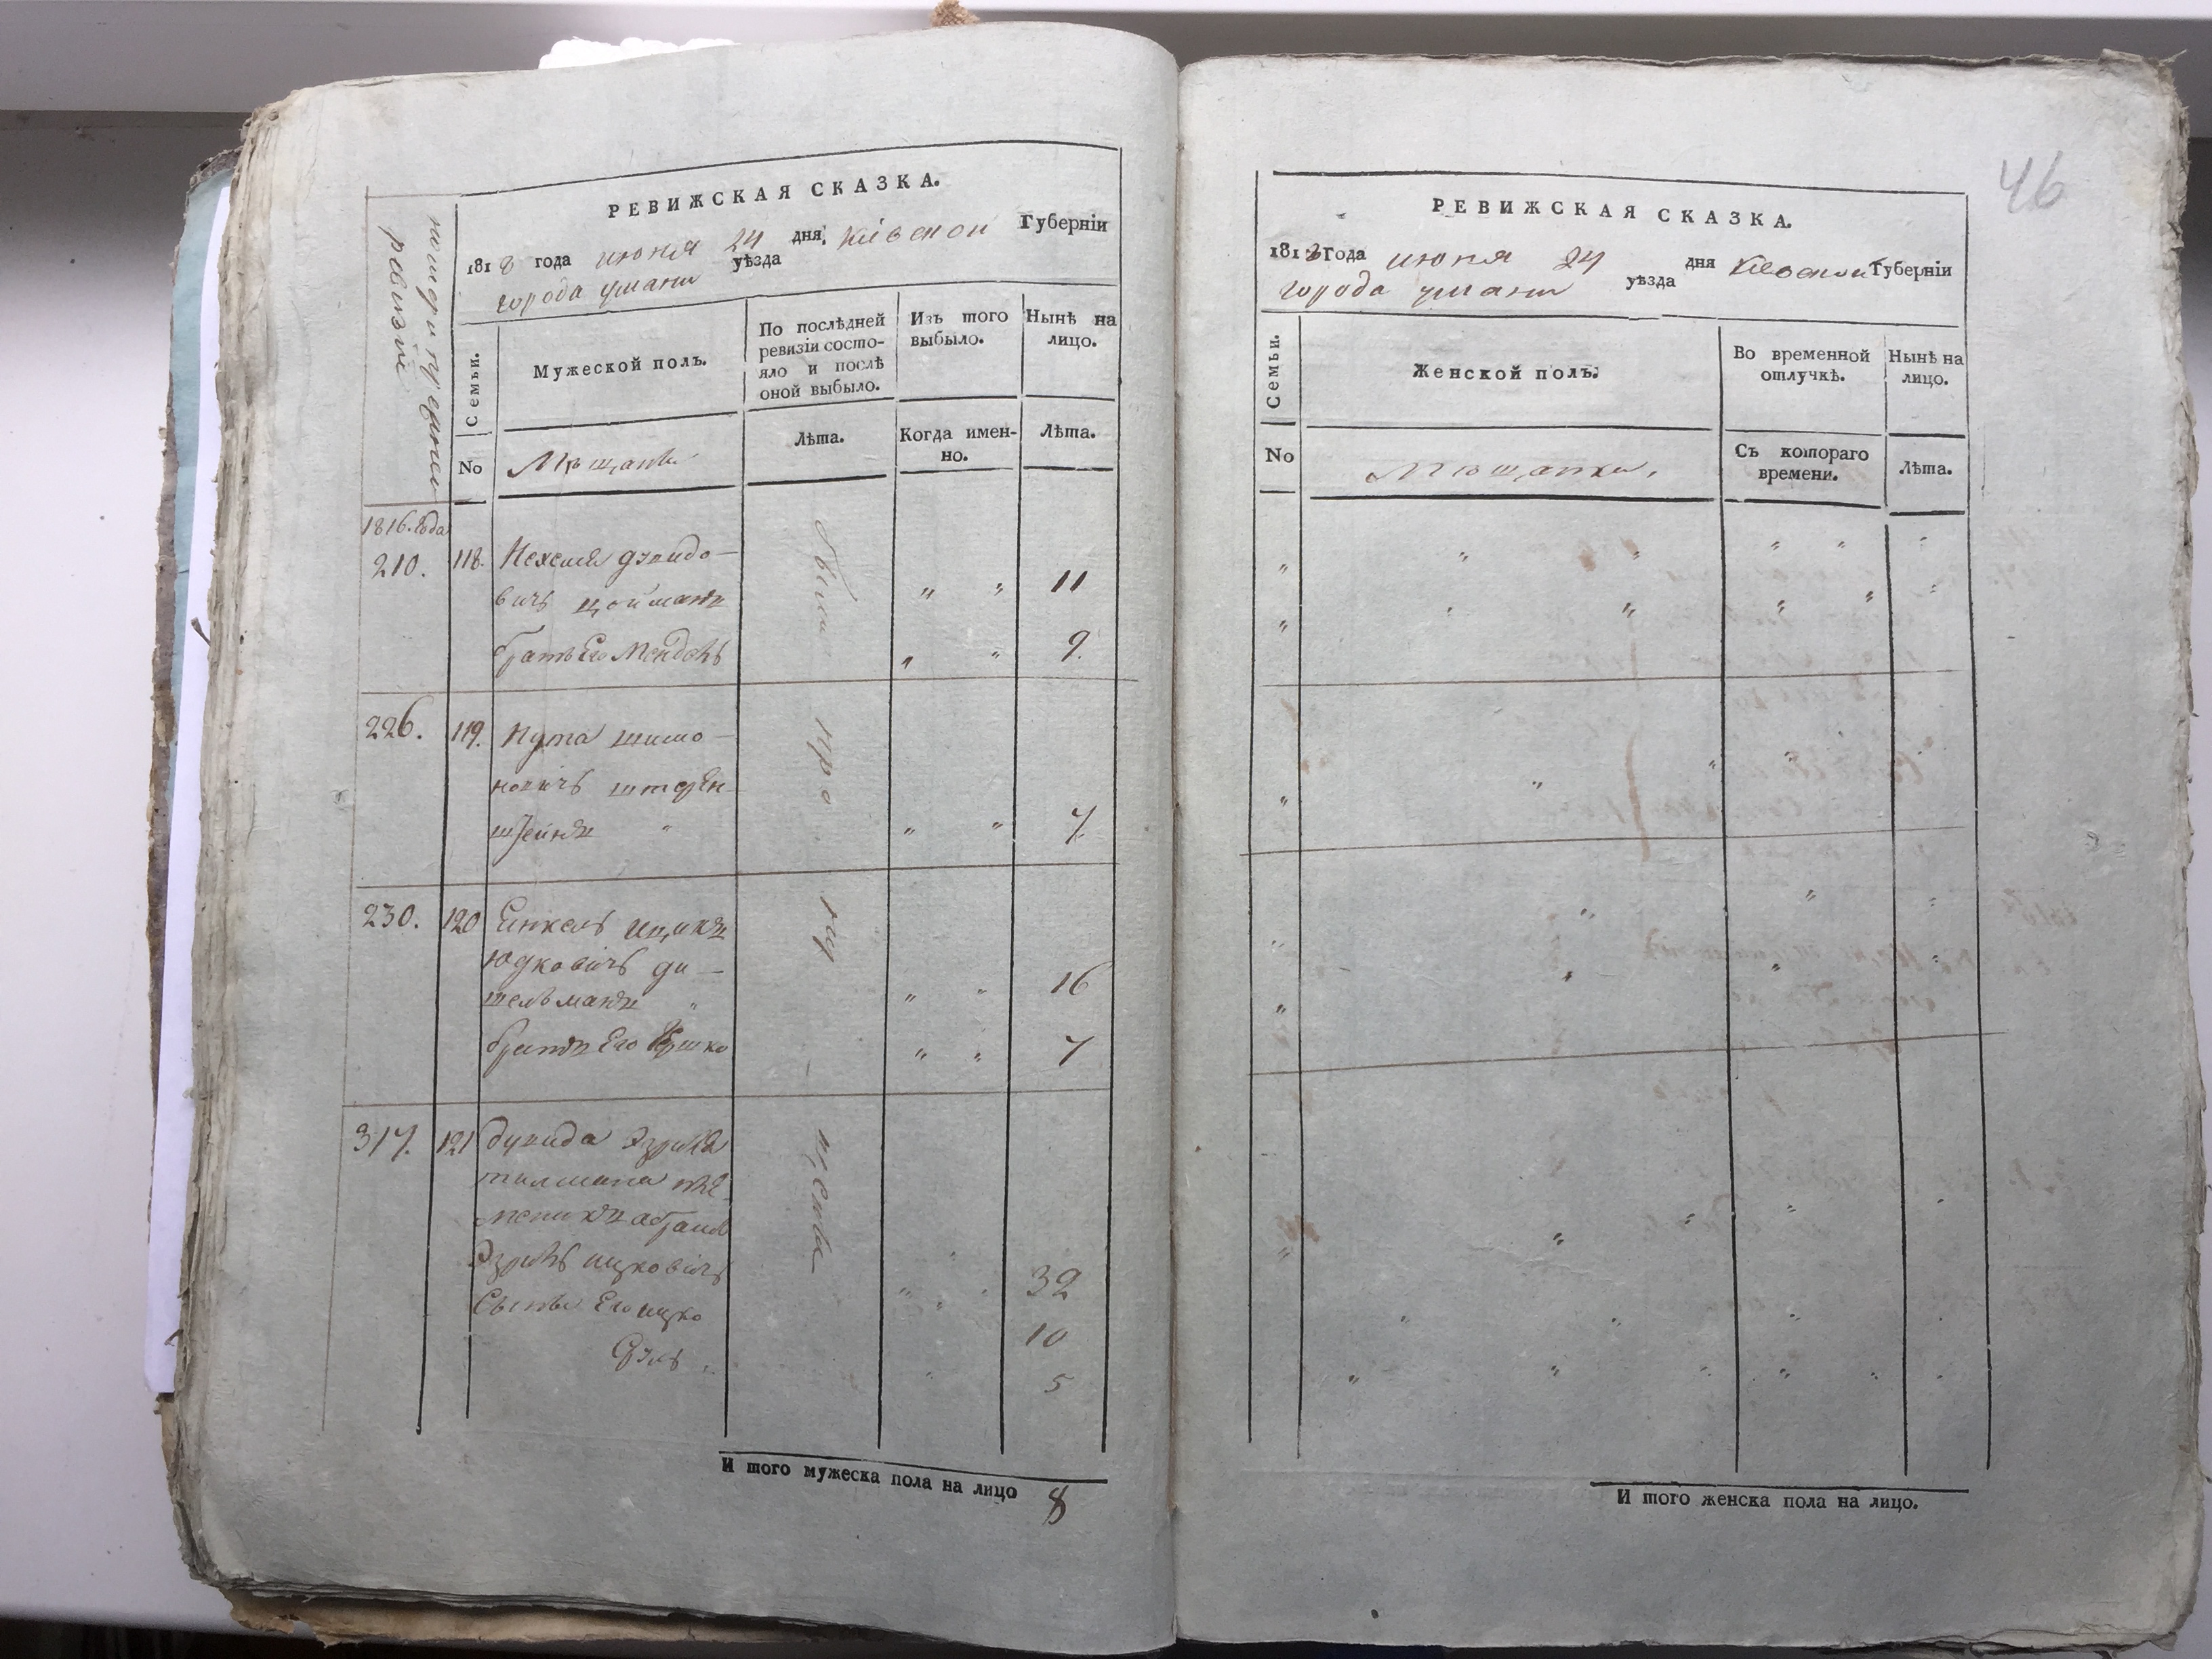 РЕВИЖСКАЯ СКАЗКА.
1818 года июня 24 дня, Кіевской Губерніи
города умани уѣзда
ревизіи
Семьи.
Мужеской полъ.
По послѣдней ревизіи состояло и послѣ оной выбыло.
Изъ того выбыло.
Нынѣ на лицо.
No
Мѣщанѣ
Лѣта.
Когда именно.
Лѣта.
1816. года
210. 118. Нехемя
вичъ цойманъ " " 11
братъ Его Мендель " " 9.
226. 119. Нута шимо-
новичъ штерен-
штейнъ " " " 7.
230. 120 Еинкель ицикъ
юдковичъ ди-
тельманъ " " " 16
братъ Его " " 7
317. 121
абрамъ
ицковичъ " " 32
Сынъ Его ицко " 10
" 5
были
про
пу
щены
И того мужеска пола на лицо 8
46
РЕВИЖСКАЯ СКАЗКА.
1818 года июня 24 дня Кіевской Губерніи
города умани уѣзда
Семьи.
Женской полъ.
Во временной отлучкѣ.
Нынѣ на лицо.
No
Мѣщанки.
Съ котораго времени.
Лѣта.
И того женска пола на лицо.